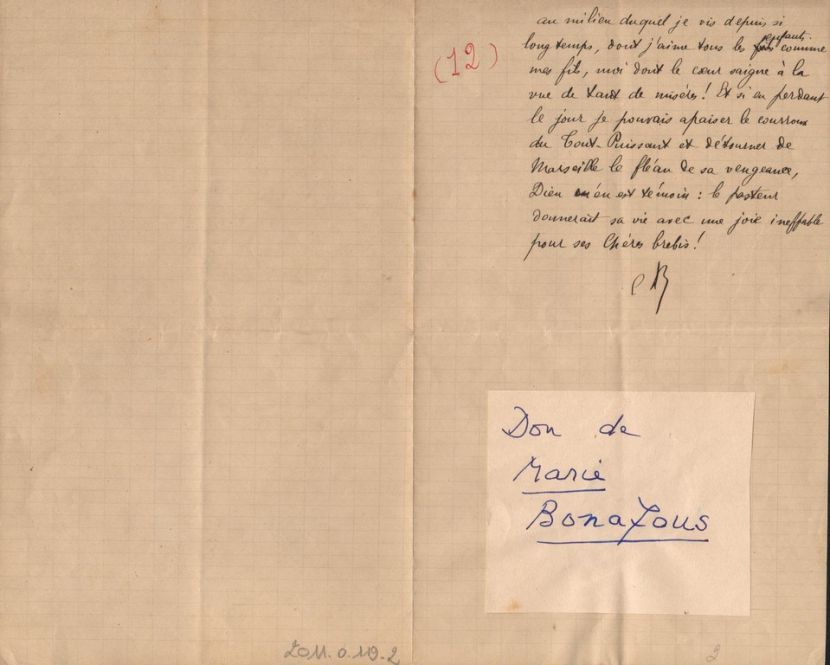 (12)
au milieu duquel je vis depuis si
longtemps, dont j'aime tous les fils enfants comme
mes fils, moi dont le cœur saigne à la
vue de tant de misères ! Et si en perdant
le jour je pouvais apaiser le courroux
du Tout-Puissant et détourner de
Marseille le fléau de sa vengeance,
Dieu m'en est témoin : le pasteur
donnerait sa vie avec une joie ineffable
pour ses chères brebis !
Don de
Marie
Bonafous
2011.0.119-2